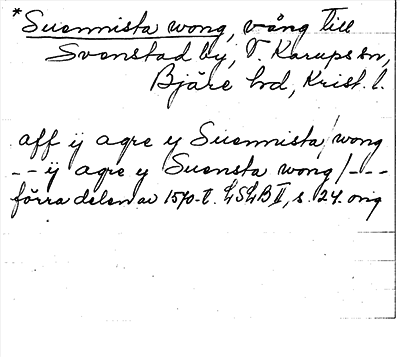 *Suenmista wong, vång till
Svenstad by, V. Karups sn,
Bjäre hd, Krist. l.
aff ij agre y Suenmista / wong
-- ij agre y Suensta wong / ---
förra delen av 1570-t. LSLB II, s. 24. orig